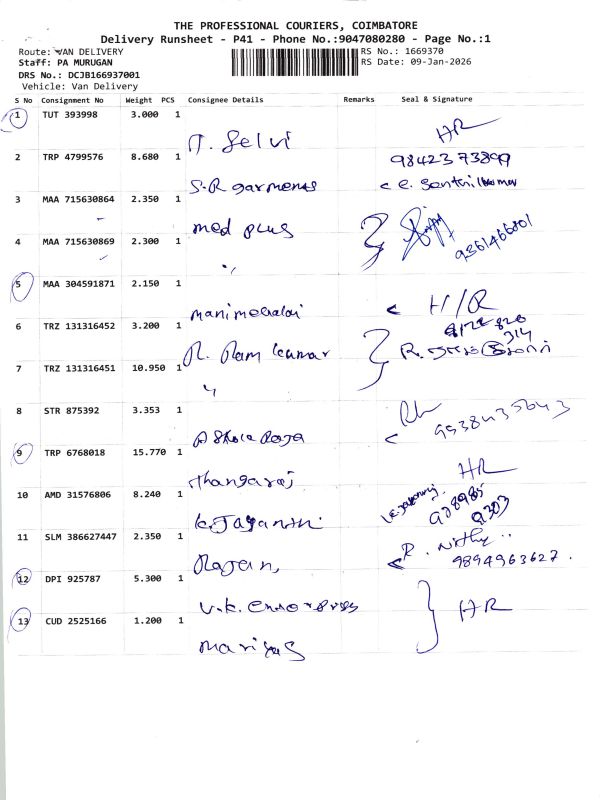 THE PROFESSIONAL COURIERS, COIMBATORE
Delivery Runsheet - P41 - Phone No.:9047080280 - Page No.:1
Route: VAN DELIVERY
RS No.: 1669370
Staff: PA MURUGAN
RS Date: 09-Jan-2026
DRS No.: DCJB166937001
Vehicle: Van Delivery
S No Consignment No Weight PCS Consignee Details Remarks Seal & Signature
1 TUT 393998 3.000 1
T. Selvi HR
2 TRP 4799576 8.680 1
9842373899
S.R garments
3 MAA 715630864 2.350 1
med plus
4 MAA 715630869 2.300 1
9361466801
5 MAA 304591871 2.150 1
manimegalai H/R
6 TRZ 131316452 3.200 1
R. Ram kumar
7 TRZ 131316451 10.950 1
8 STR 875392 3.353 1
9538435643
Ashok Raja
9 TRP 6768018 15.770 1
Thangaraj HR
10 AMD 31576806 8.240 1
K. Jayanthi
11 SLM 386627447 2.350 1
Rajan, 9894963627.
12 DPI 925787 5.300 1
V.K. Enterprises HR
13 CUD 2525166 1.200 1